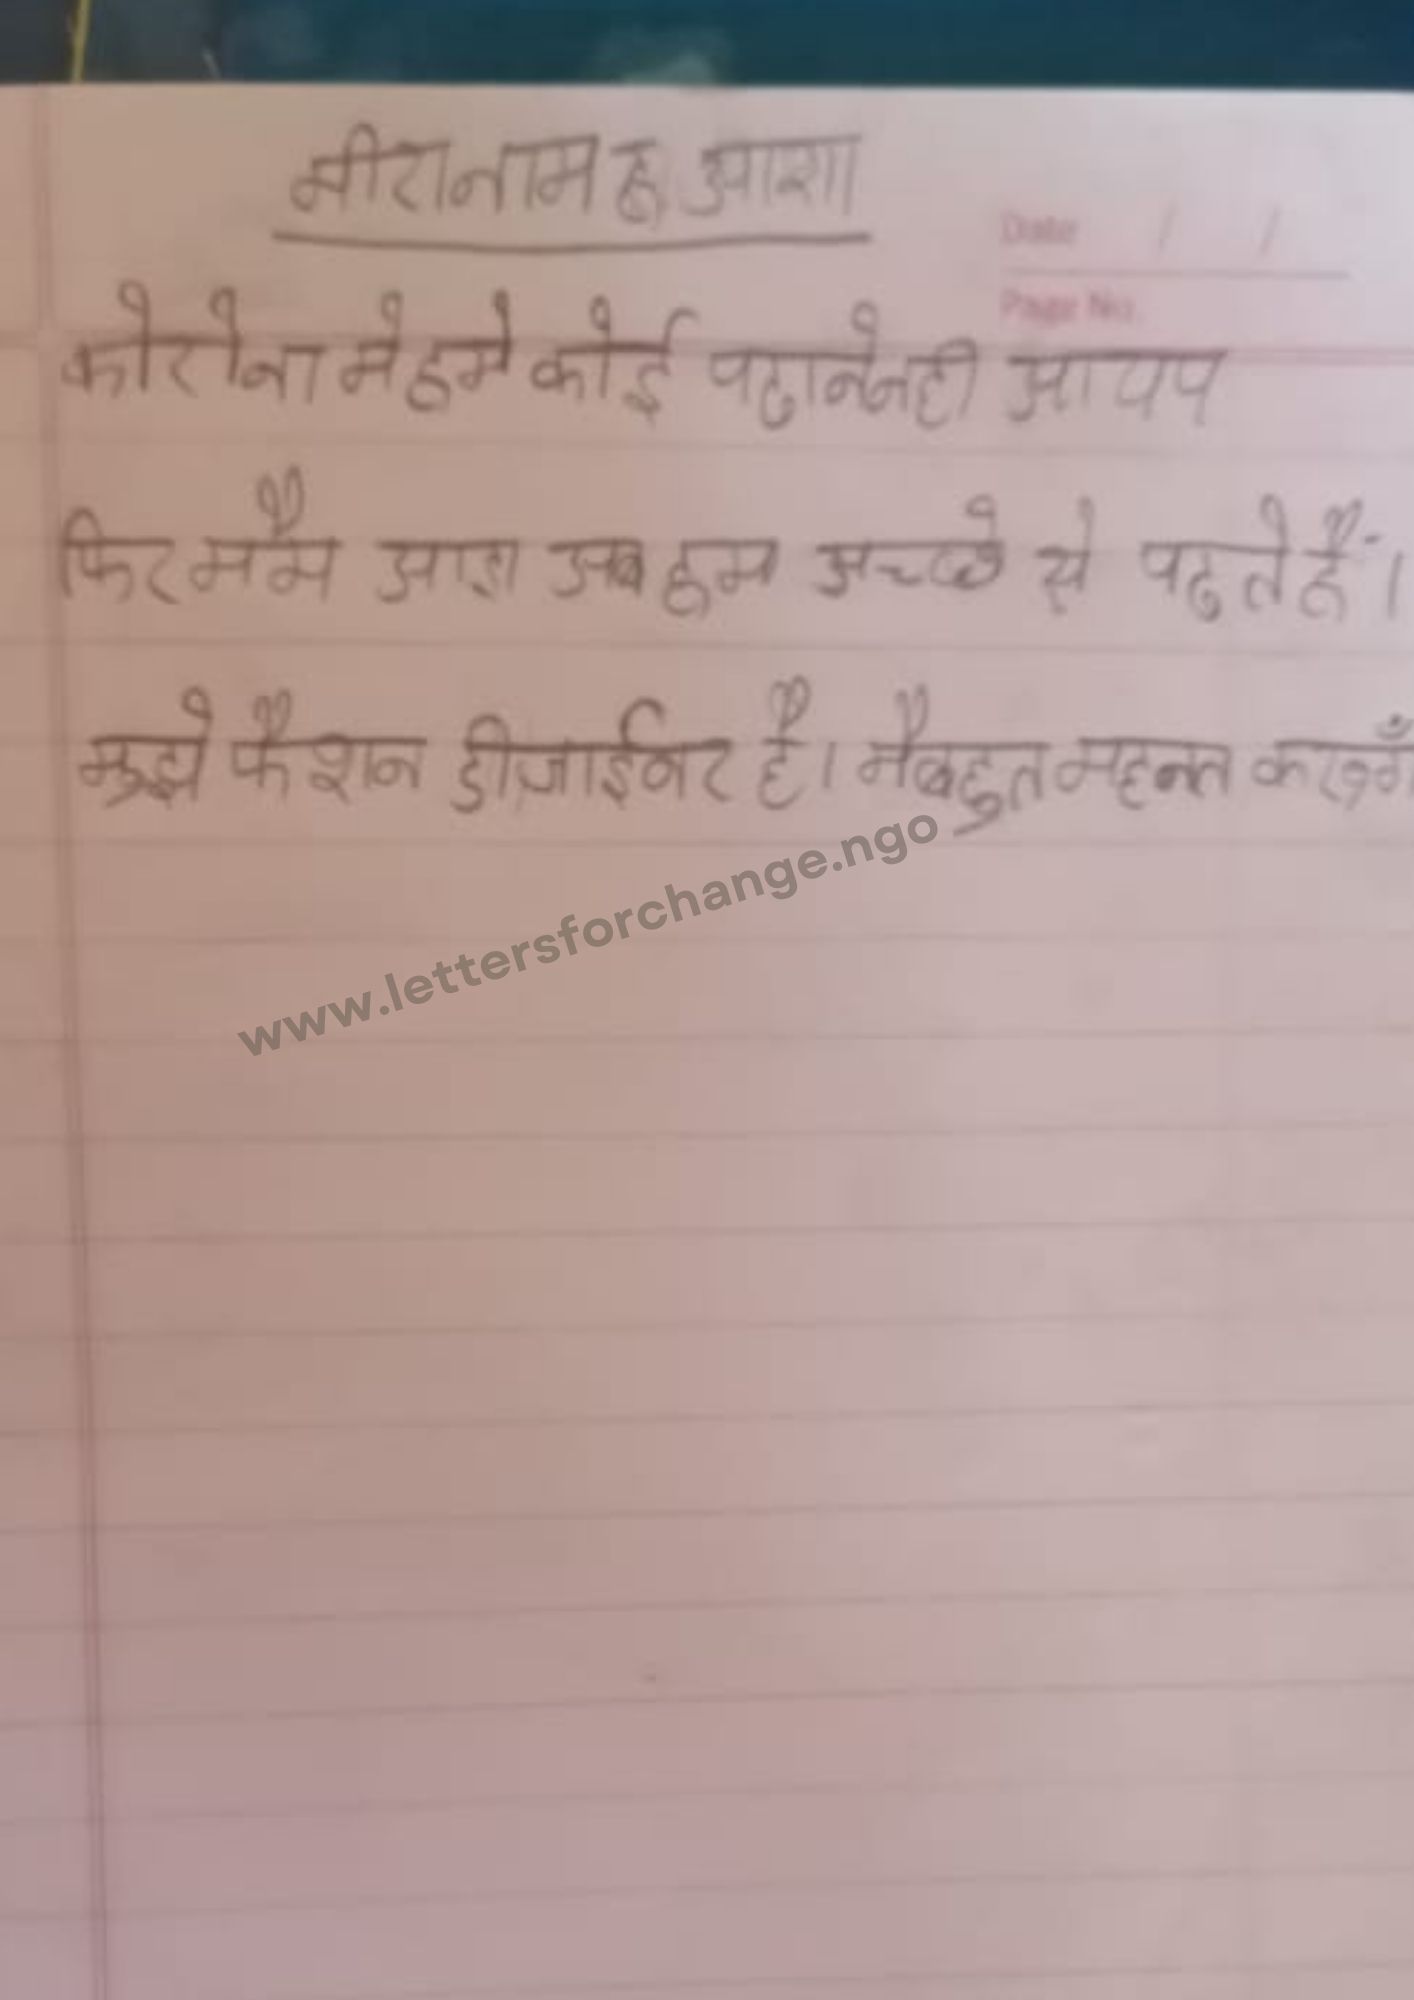 मीरा नाम ह आशा
Date / /
Page No.
कोरोना मे हमे कोई पढाने नही आयप
फिर ममै आश अब हम अच्छे से पढते हैं।
मुझे फैशन डीज़ाईनर है। मै बहुत महनत करूगँ
www.lettersforchange.ngo